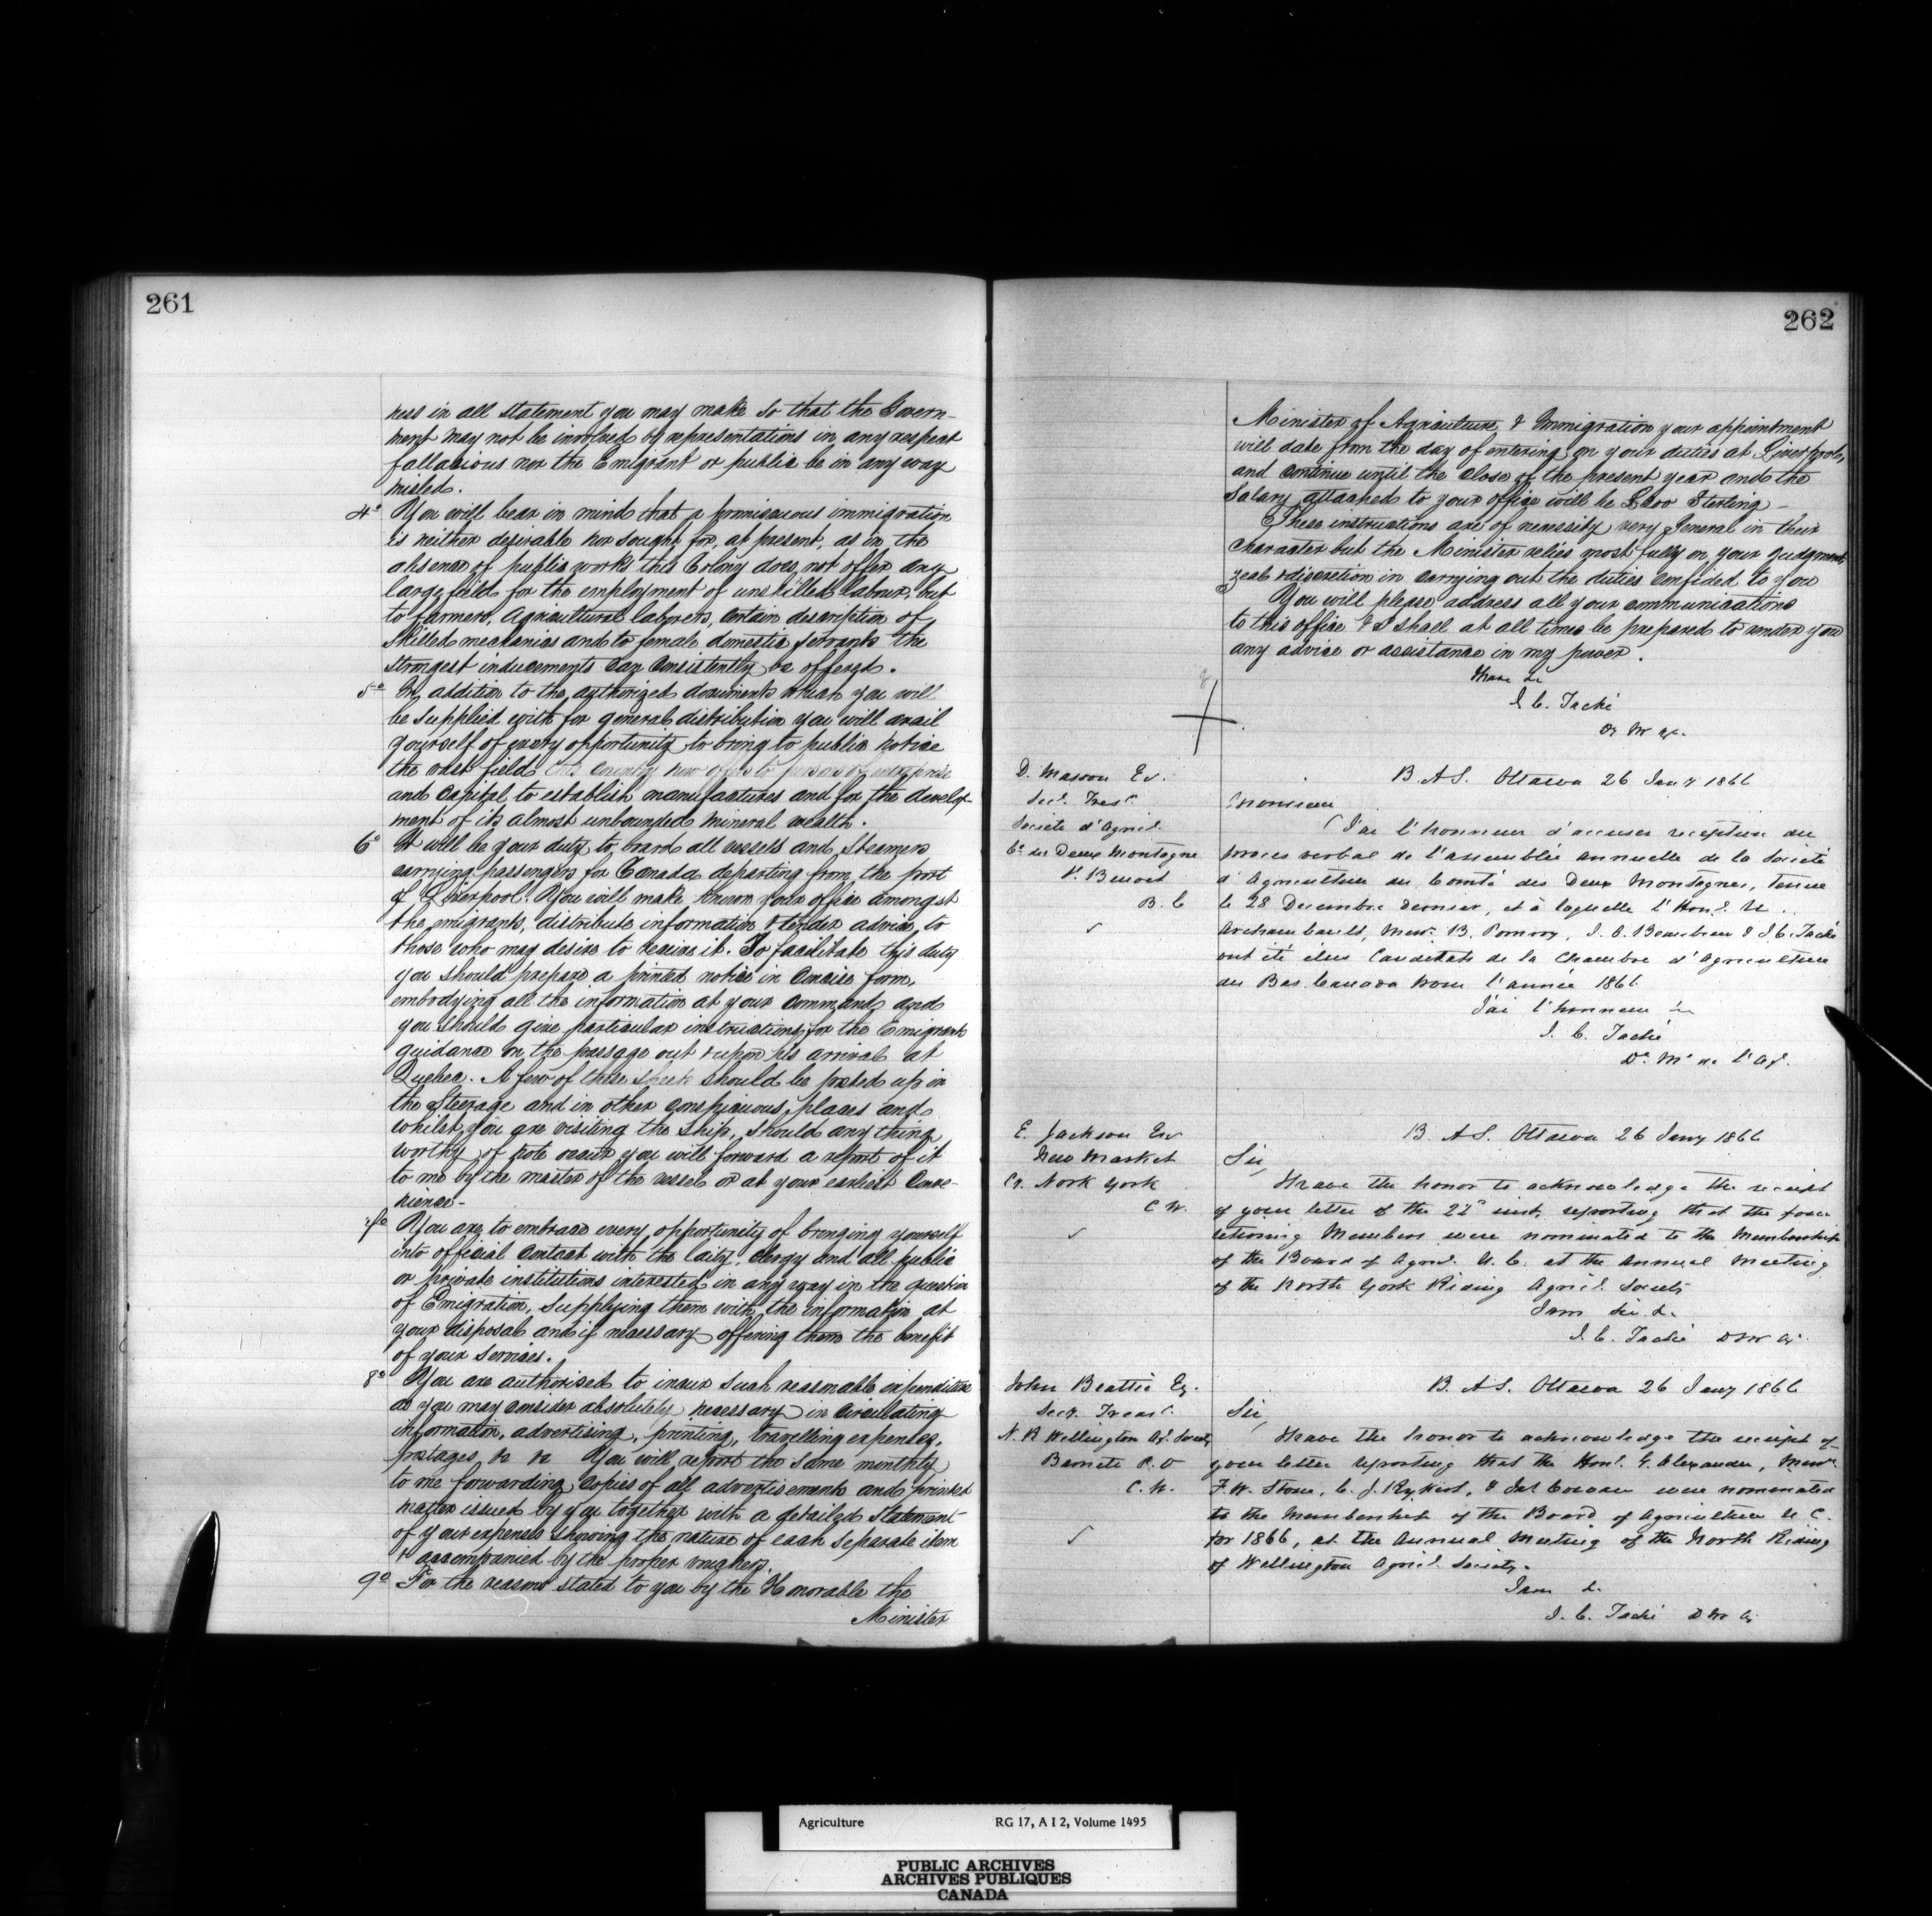 261
ness in all statement you may make so that the Govern-
ment may not be involved by representations in any respect
fallacious nor the Emigrant or public be in any way
misled.
4° You will bear in mind that a promiscuous immigration
is neither desirable nor sought for, at present, as in the
absence of public works this Colony does not offer any
large field for the employment of unskilled labour, but
to farmers, agricultural laborers, certain description of
skilled mechanics and to female domestic servants the
strongest inducements can consistently be offered.
5° In addition to the authorized documents which you will
be supplied with for general distribution you will avail
yourself of every opportunity to bring to public notice
the vast field this country now offers to persons of enterprise
and capital to establish manufactures and for the develop-
ment of its almost unbounded mineral wealth.
6° It will be your duty to board all vessels and Steamers
carrying passengers for Canada departing from the port
of Liverpool. You will make known your office amongst
the emigrants, distribute information & tender advice, to
those who may desire to receive it. To facilitate this duty
you should prepare a printed notice in Concise form,
embodying all the information at your command, and
you should give particular instructions for the Emigrants
guidance on the passage out & upon his arrival at
Quebec. A few of these sheets should be posted up in
the Steerage and in other conspicuous places and
whilst you are visiting the ship, should any thing
worthy of note occur you will forward a report of it
to me by the master of the vessel or at your earliest Conve-
nience-
7° You are to embrace every opportunity of bringing yourself
into official contact with the laity, clergy and all public
or private institutions interested in any way in the question
of Emigration, supplying them with the information at
your disposal and if necessary offering them the benefit
of your services.
8° You are authorised to incur such reasonable expenditure
as you may consider absolutely necessary in circulating
information, advertising, printing, travelling expenses,
postages &c &c You will report the same monthly
to me forwarding copies of all advertisements and printed
matter issued by you together with a detailed Statement
of your expenses showing the nature of each separate item
& accompanied by the proper vouchers.
9° For the reasons stated to you by the Honorable the
Minister
262
Minister of Agriculture & Immigration your appointment
will date from the day of entering on your duties at Liverpool,
and continue until the close of the present year and the
Salary attached to your office will be Sterling-
These instructions are of necessity very general in their
character but the Minister relies most fully on your judgment,
zeal & discretion in carrying out the duties confided to you
You will please address all your communications
to this office & I shall at all times be prepared to render you
any advice or assistance in my power.
I have &c
J. C. Taché
D. M. Ag.
D. Masson Er.
Secr. Tresr.
Société d'Agricl.
Co. des Deux Montagne
St. Benoit
B. C
B. A S. Ottawa 26 Jany 1866
Monsieur
J'ai l'honneur d'accuser reception du
procès verbal de l'assemblée annuelle de la Société
d'Agriculture du Comté des Deux Montagnes, tenue
le 28 Decembre dernier, et à laquelle l'Honl.
Archambault, Messrs. B. Pomroy, J. O. Beaubien & J. C. Taché
ont été élus Candidats de la Chambre d'Agriculture
du Bas Canada pour l'année 1866
J'ai l'honneur &c
J. C. Taché
D. M. de l'Ag.
E. Jackson Esr
New Market
Co. North York
C W.
B. A S. Ottawa 26 Jany 1866
Sir,
I have the honor to acknowledge the receipt
of your letter of the 22d inst. reporting that the four
retiring Members were nominated to the Membership
of the Board of Agricl. U. C. at the Annual Meeting
of the North York Riding Agricl. Society
I am Sir &c.
J. C. Taché D M Ag.
John Beattie Eq.
Secy. Treasr.
N. R Wellington Ag. Society
P. O
C. W.
B. A S. Ottawa 26 Jany 1866
Sir,
I have the honor to acknowledge the receipt of
your letter reporting that the Honl. G. Alexander, Messrs.
F. W. Stone, C. J. Rykert, & Jas Cowan were nominated
to the Membership of the Board of Agriculture U C.
for 1866, at the Annual Meeting of the North Riding
of Wellington Agricl. Society.
I am &c.
J. C. Taché D M Ag
Agriculture RG 17, A I 2, Volume 1495
PUBLIC ARCHIVES
ARCHIVES PUBLIQUES
CANADA